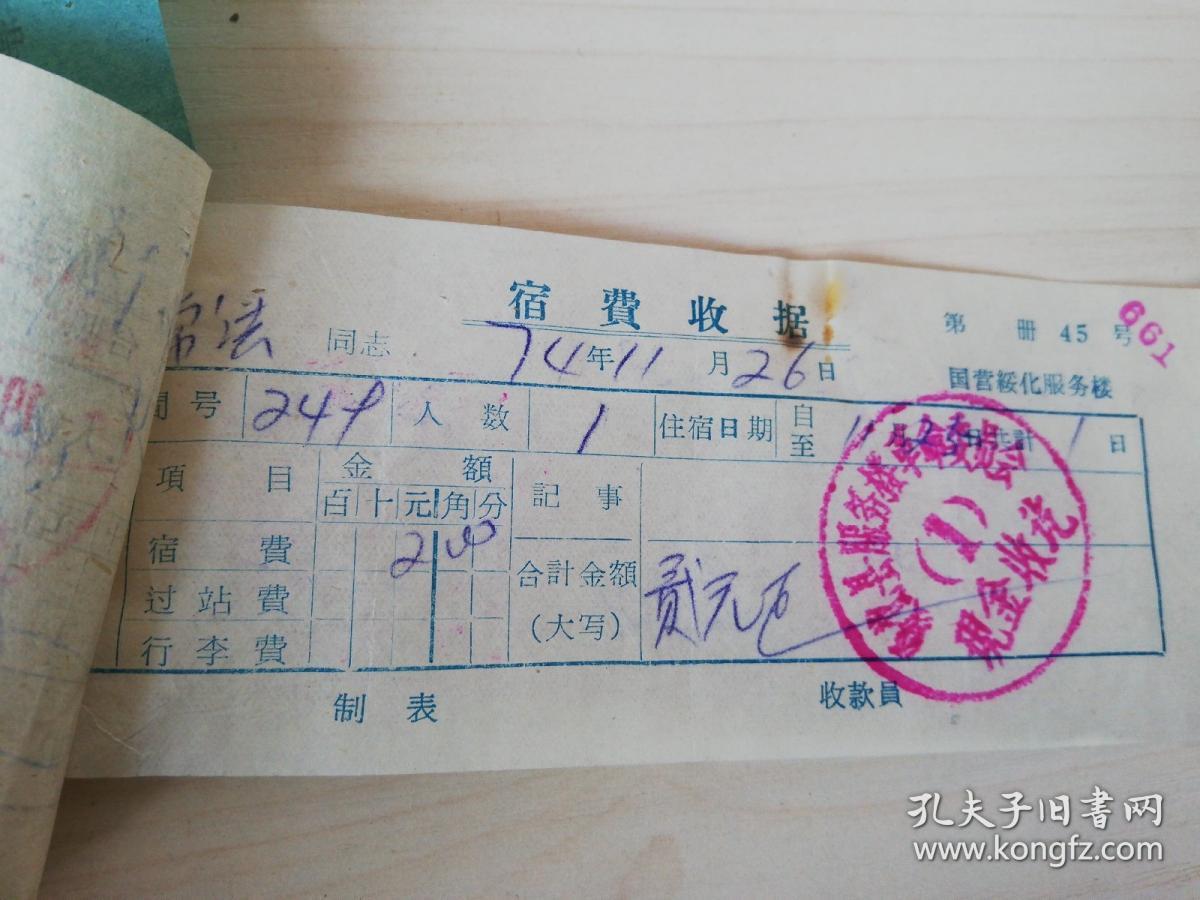 宿費收据
第 册 45 号
661
同志 74年11月26日 国营綏化服务楼
間号 249 人数 1 住宿日期 自至 11月25日共計 1 日
項目 金額 記事
百十元角分
宿費 2 00 合計金額(大写) 贰元正
过站費
行李費
(1)
現金收讫
制表 收款員
孔夫子旧书网
www.kongfz.com